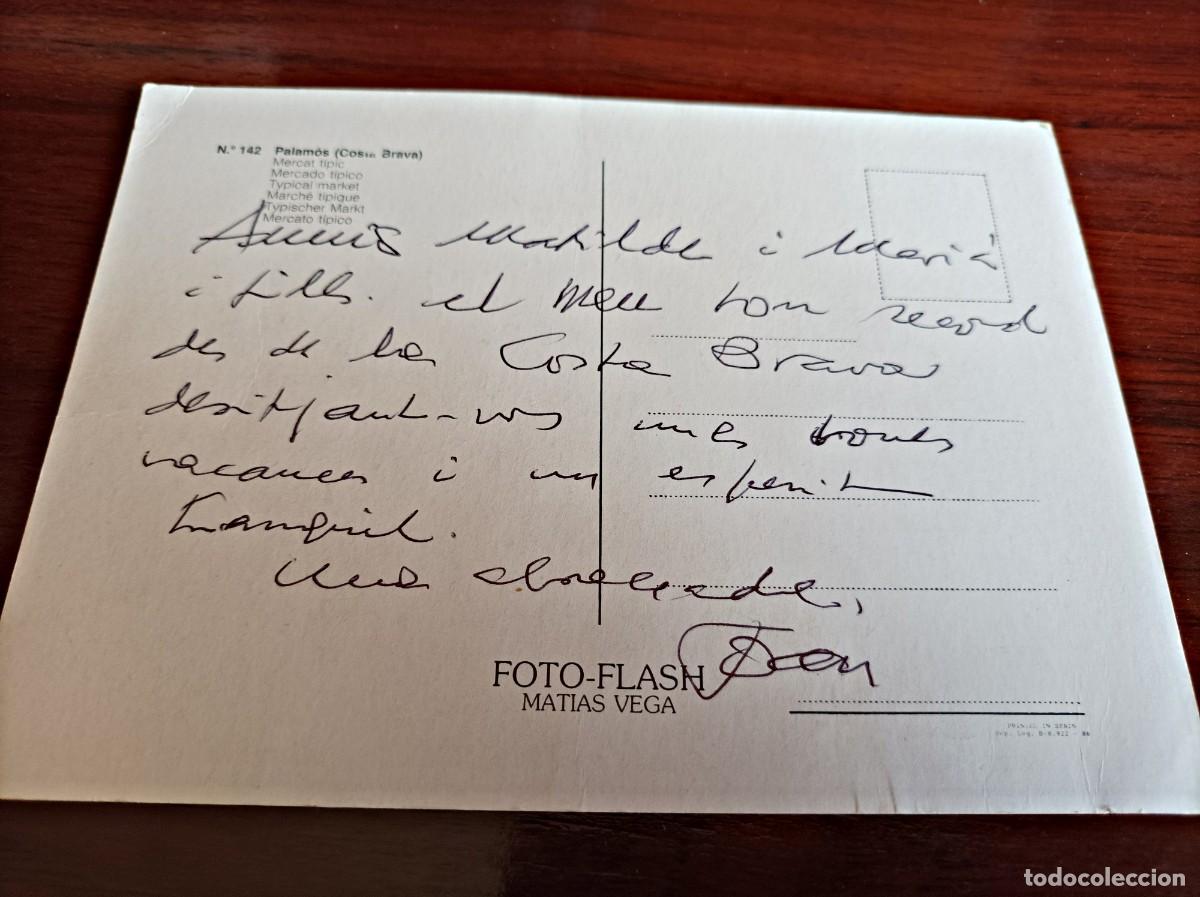 N.º 142 Palamós (Costa Brava)
Mercat típic
Mercado típico
Typical market
Marché tipique
Typischer Markt
Mercato típico
Amics Matilde i Marià
i fills. el meu bon record
des de la Costa Brava
desitjant-vos unes bones
vacances i un esperit
tranquil.
Una abraçada,
Joan
FOTO-FLASH
MATIAS VEGA
PRINTED IN SPAIN
Dep. Leg. B-8.922 - 86
todocoleccion